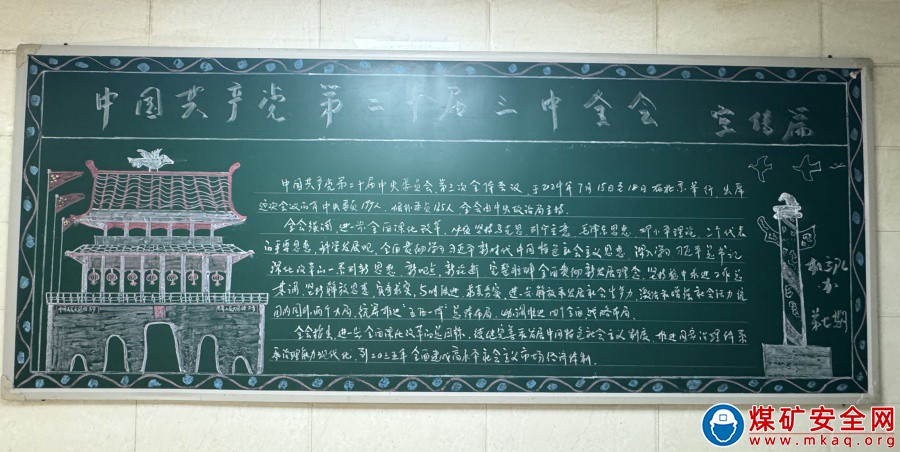 中国共产党第二十届三中全会 宣传篇
中国共产党第二十届中央委员会第三次全体会议,于2024年7月15日至18日在北京举行,出席
这次会议的有中央委员199人,候补委员165人,全会由中央政治局主持。
全会强调,进一步全面深化改革,必须坚持马克思列宁主义,毛泽东思想,邓小平理论,三个代表
重要思想,科学发展观,全面贯彻习近平新时代中国特色社会主义思想,深入学习习近平总书记
深化改革的一系列新思想,新观点,新论断,完整准确全面贯彻新发展理念,坚持稳中求进工作总
基调,坚持解放思想,实事求是,与时俱进,求真务实,进一步解放和发展社会生产力,激活和增强社会活力,统
国内国际两个大局,统筹推进"五位一体"总体布局,协调推进四个全面战略布局。
全会指出,进一步全面深化改革的总目标,继续完善和发展中国特色社会主义制度,推进国家治理体系
和治理能力现代化,到二〇三五年全面建成高水平社会主义市场经济体制
机三队
办
第七期
煤矿安全网
www.mkaq.org